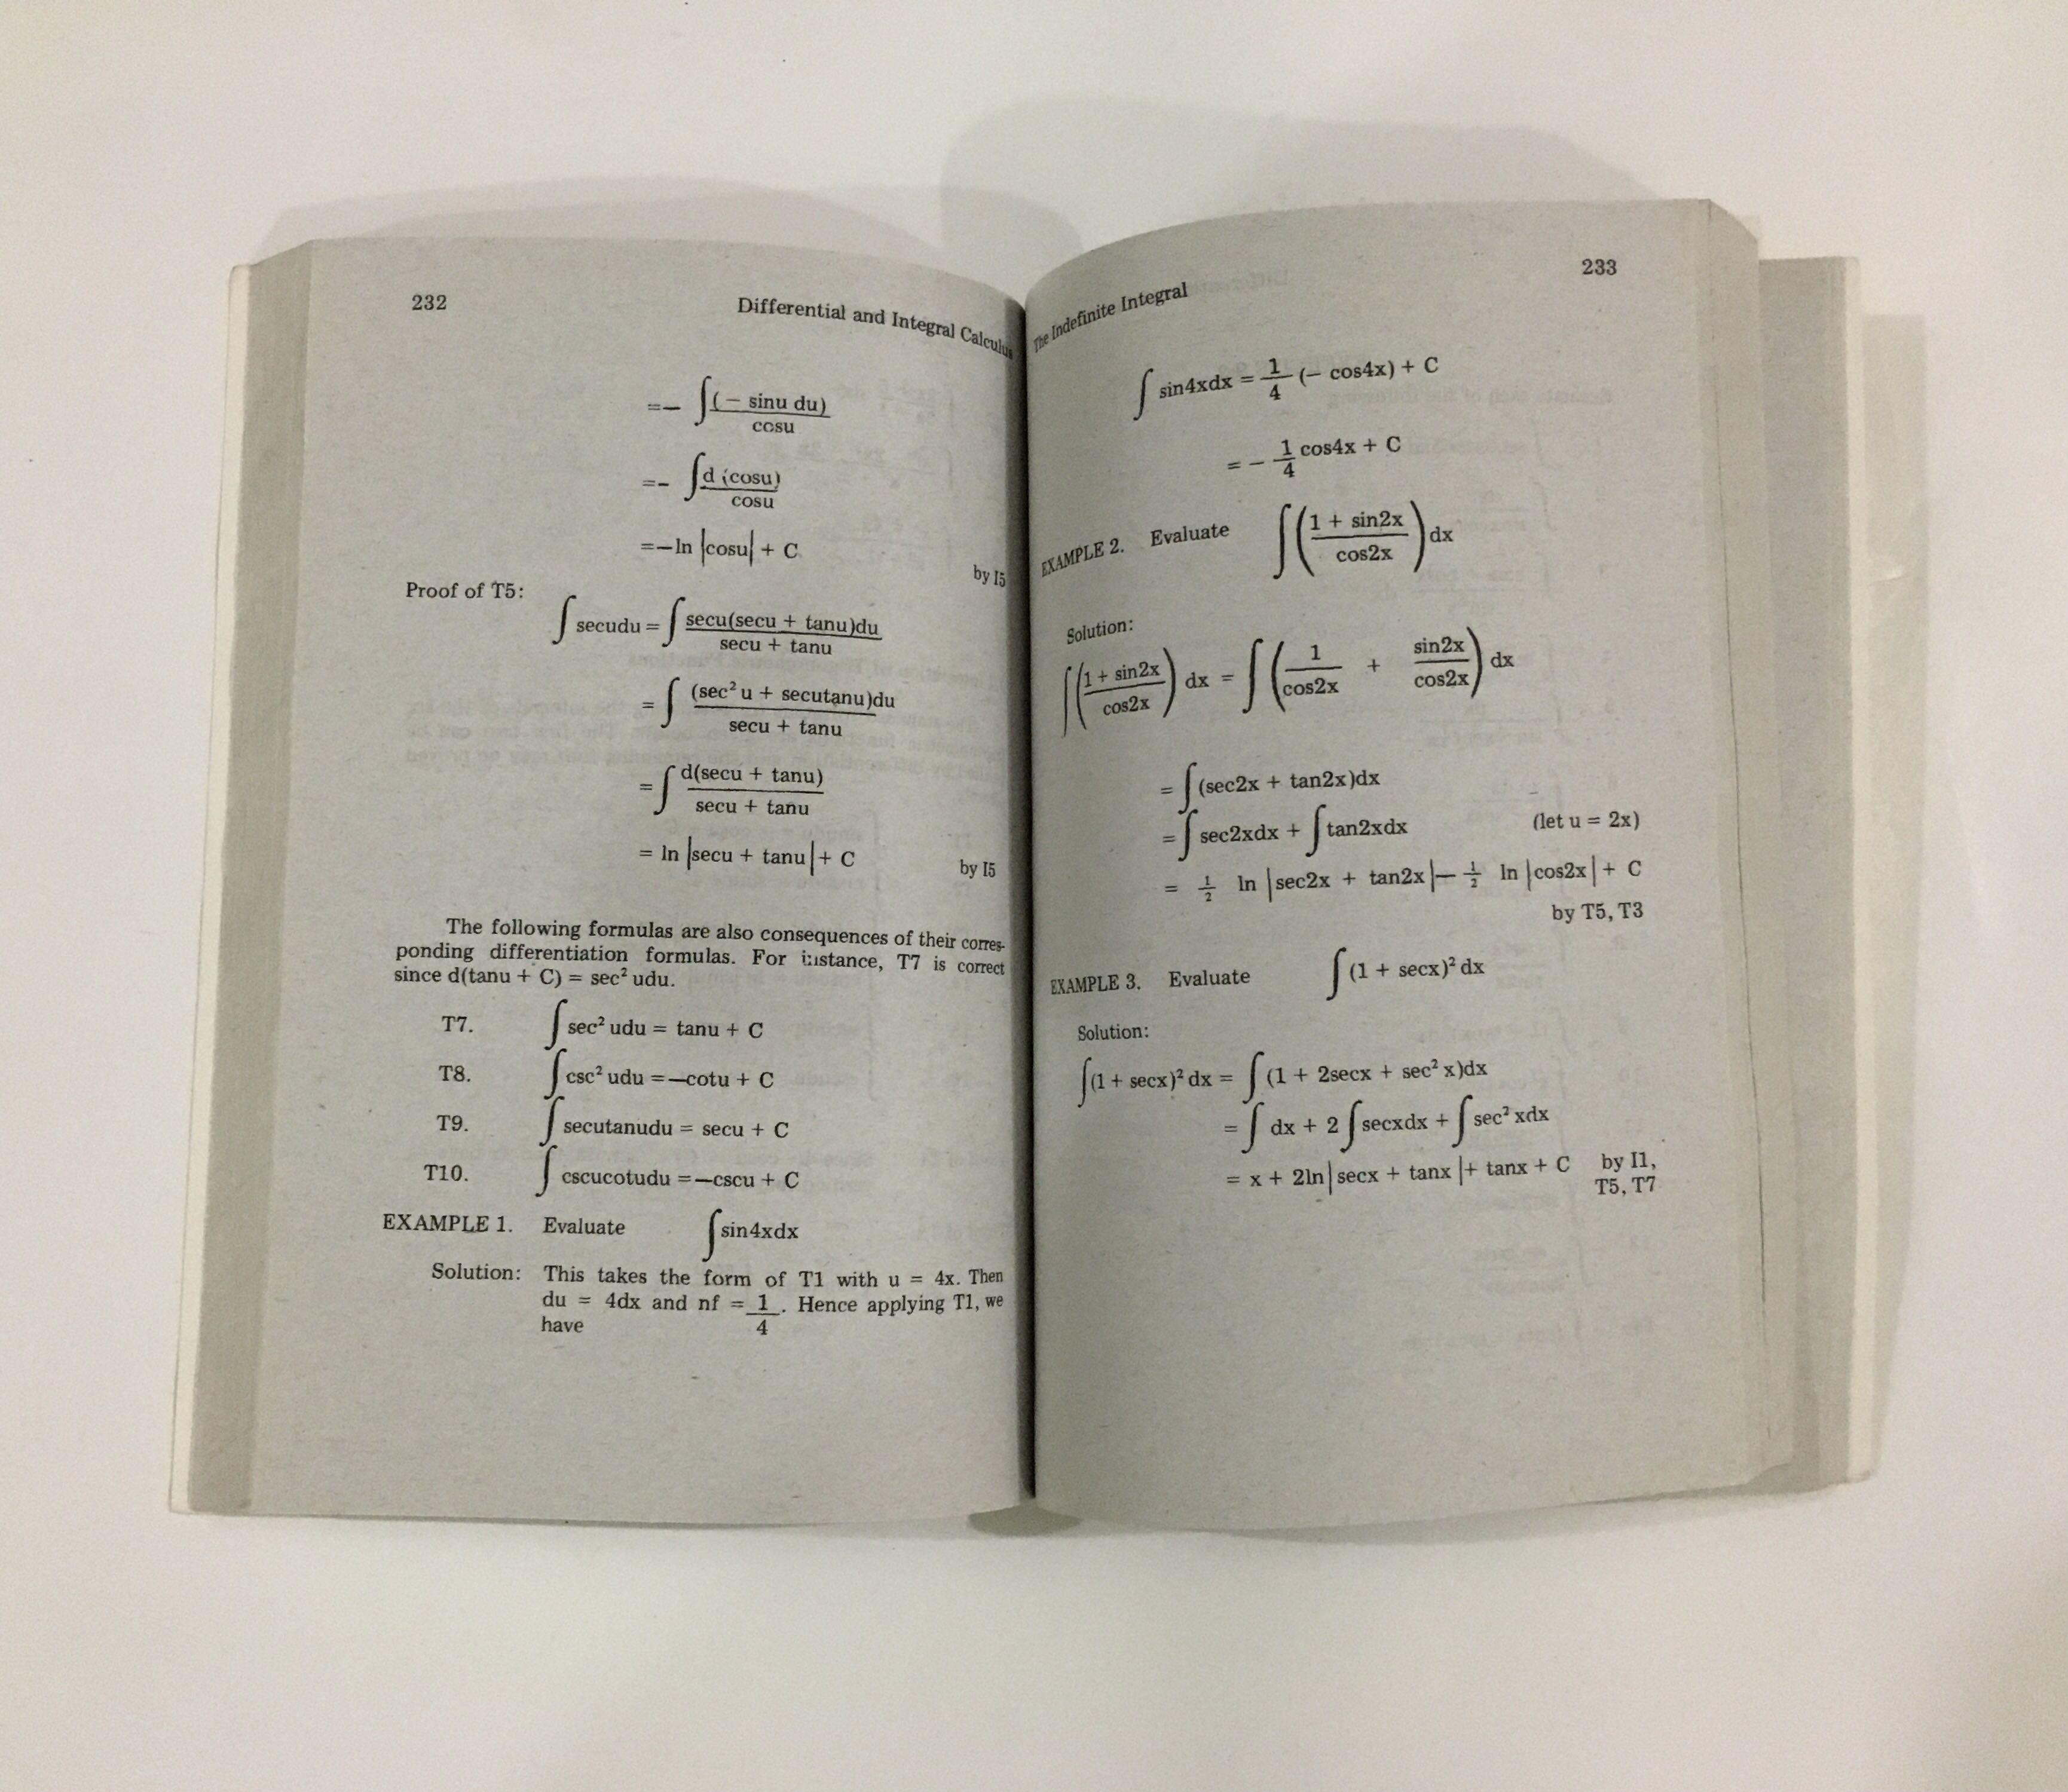 232
Differential and Integral Calculus
=– ∫ (– sinu du) / cosu
=– ∫ d (cosu) / cosu
=–ln |cosu| + C
by I5
Proof of T5:
∫ secudu = ∫ secu(secu + tanu)du / secu + tanu
= ∫ (sec² u + secutanu)du / secu + tanu
= ∫ d(secu + tanu) / secu + tanu
= ln |secu + tanu| + C by I5
The following formulas are also consequences of their corres-
ponding differentiation formulas. For instance, T7 is correct
since d(tanu + C) = sec² udu.
T7. ∫ sec² udu = tanu + C
T8. ∫ csc² udu =–cotu + C
T9. ∫ secutanudu = secu + C
T10. ∫ cscucotudu =–cscu + C
EXAMPLE 1. Evaluate ∫ sin4xdx
Solution: This takes the form of T1 with u = 4x. Then
du = 4dx and nf = 1/4. Hence applying T1, we
have
The Indefinite Integral
233
∫ sin4xdx = 1/4 (– cos4x) + C
= – 1/4 cos4x + C
EXAMPLE 2. Evaluate ∫ (1 + sin2x / cos2x) dx
Solution:
∫ (1 + sin2x / cos2x) dx = ∫ (1 / cos2x + sin2x / cos2x) dx
= ∫ (sec2x + tan2x)dx
= ∫ sec2xdx + ∫ tan2xdx (let u = 2x)
= 1/2 ln |sec2x + tan2x| – 1/2 ln |cos2x| + C
by T5, T3
EXAMPLE 3. Evaluate ∫ (1 + secx)² dx
Solution:
∫ (1 + secx)² dx = ∫ (1 + 2secx + sec² x)dx
= ∫ dx + 2 ∫ secxdx + ∫ sec² xdx
= x + 2ln| secx + tanx | + tanx + C by I1,
T5, T7